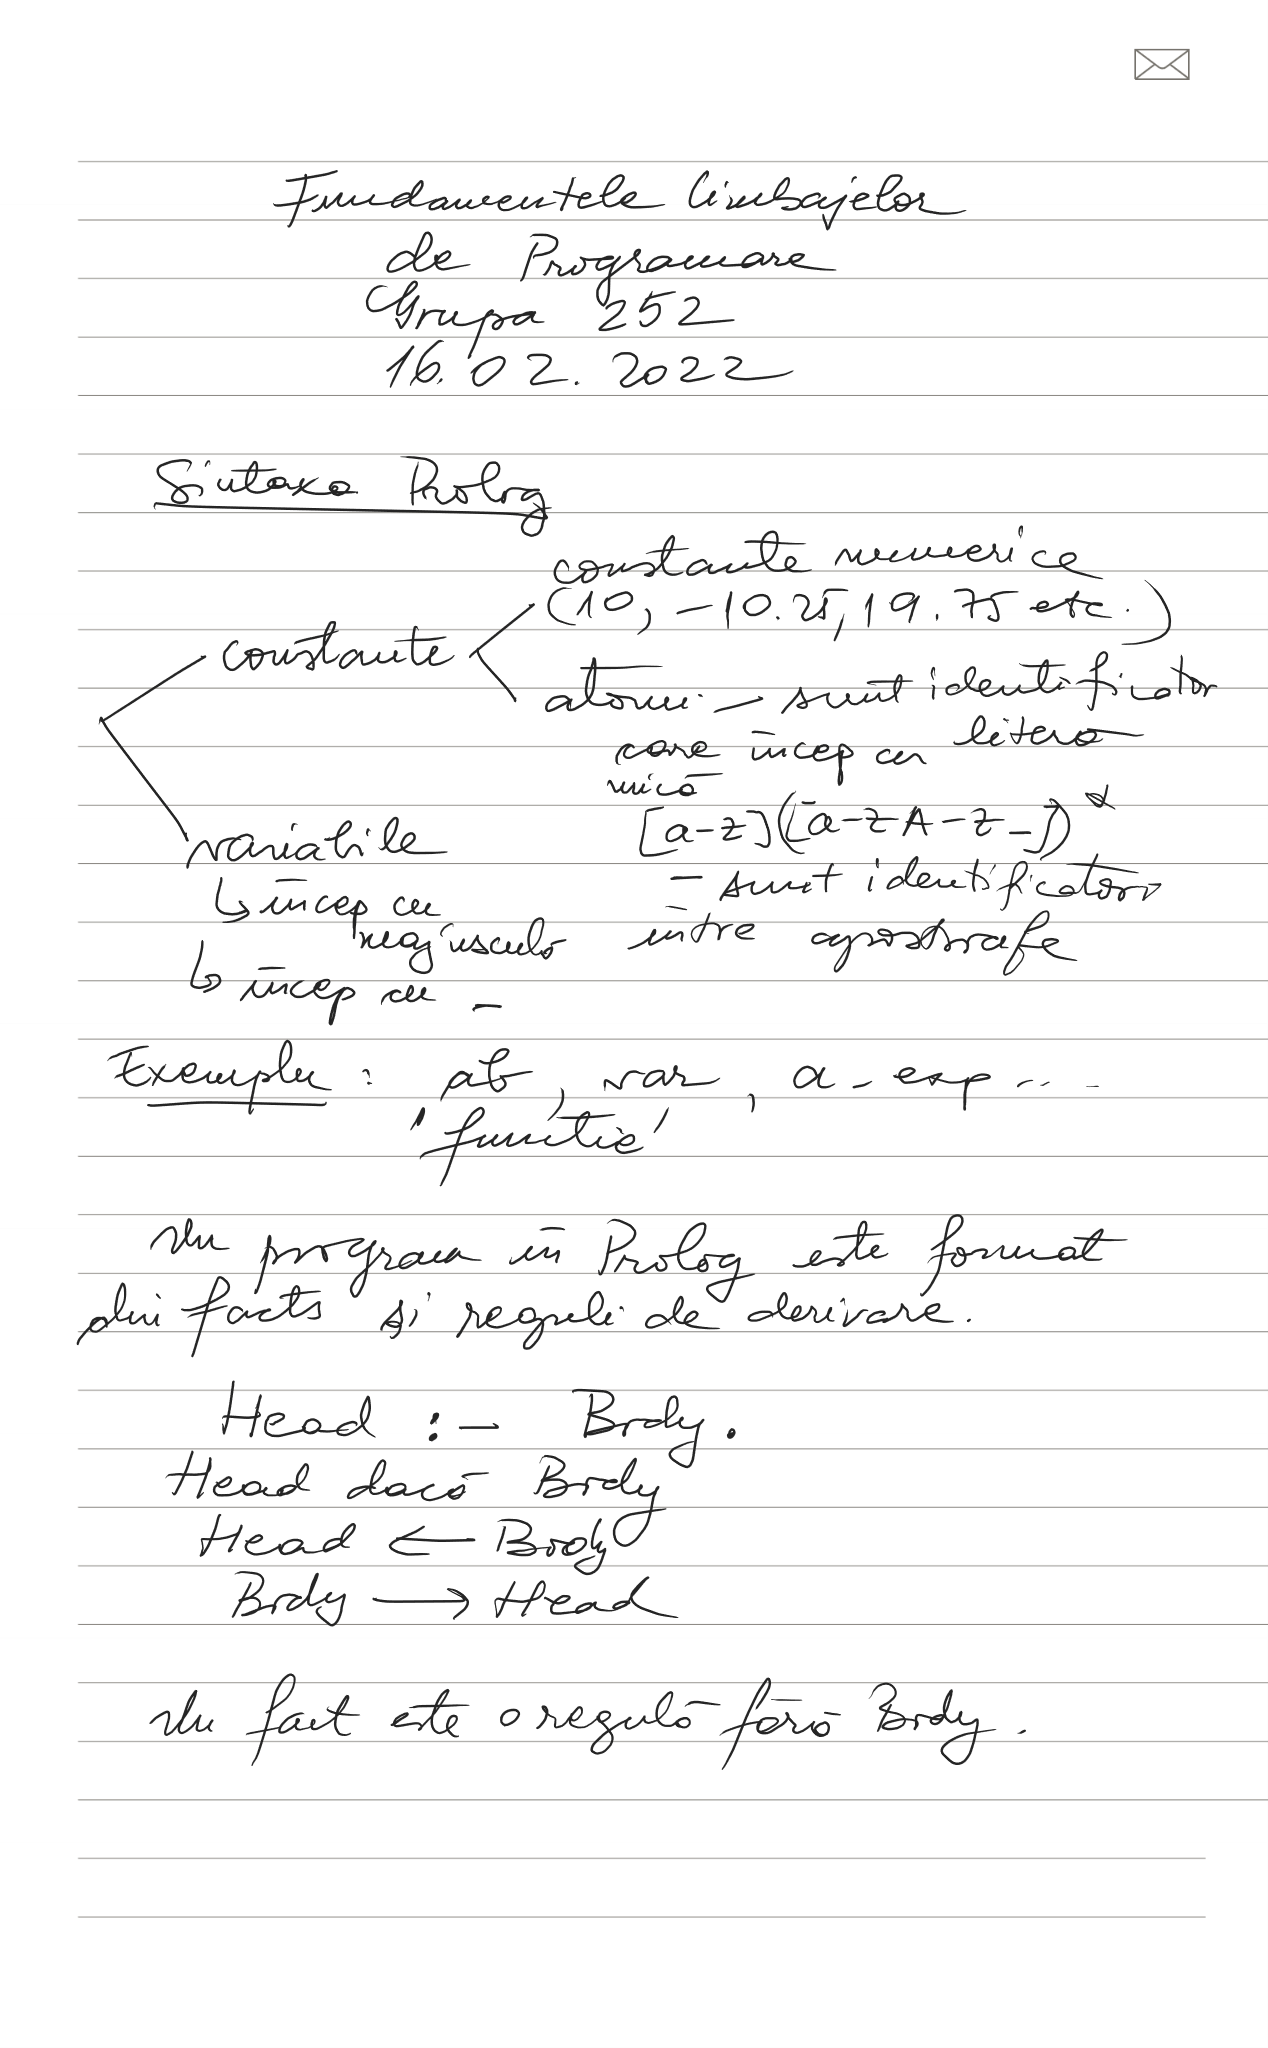 Fundamentele Limbajelor
de Programare
Grupa 252
16.02.2022
Sintaxa Prolog
constante numerice
(10, -10.25, 19.75 etc.)
constante
atomi - sunt identificatori
care încep cu literă
mică
[a-z]([a-zA-Z_])*
variabile
- sunt identificatori
↳ încep cu
majusculă
între apostrofe
↳ încep cu _
Exemplu : ab, var, a_exp ...
'functie'
Un program în Prolog este format
din facts și reguli de derivare.
Head :- Body.
Head dacă Body
Head ← Body
Body → Head
Un fact este o regulă fără Body.